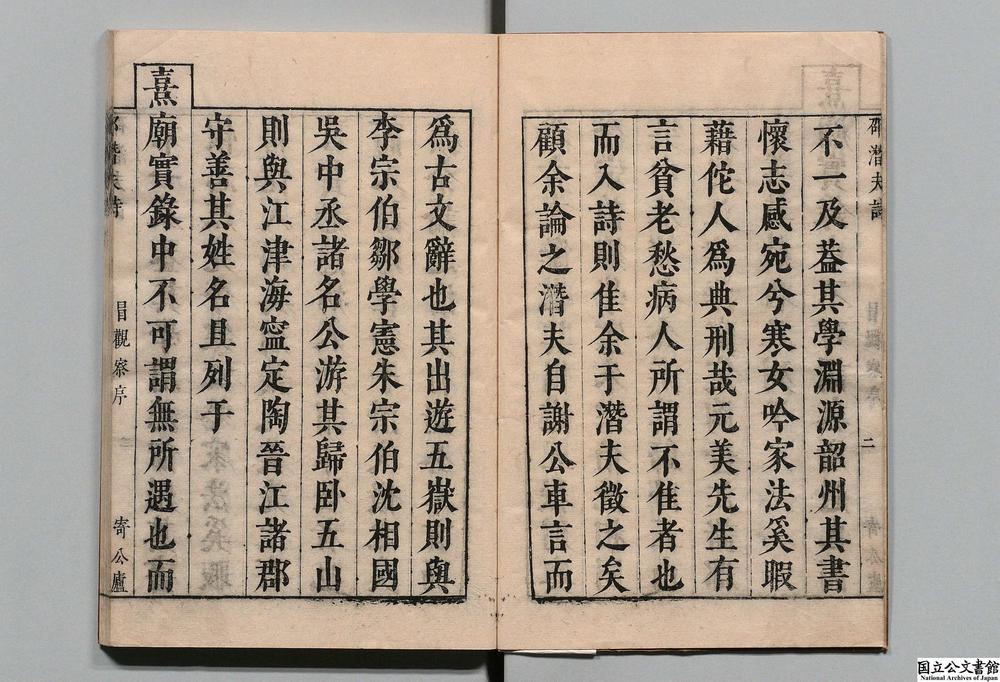 邵潛夫詩
冒觀察序
二
寄公廬
不一及葢其學淵源韶州其書
懷志感宛兮寒女吟家法奚暇
藉佗人爲典刑哉元美先生有
言貧老愁病人所謂不隹者也
而入詩則隹余于潛夫徵之矣
顧余論之潛夫自謝公車言而
爲古文辭也其出遊五嶽則與
李宗伯鄒學憲朱宗伯沈相國
吳中丞諸名公游其歸卧五山
則與江津海寍定陶晉江諸郡
守善其姓名且列于
熹廟實錄中不可謂無所遇也而
潛夫詩
冒觀察序
寄公廬
国立公文書館
National Archives of Japan